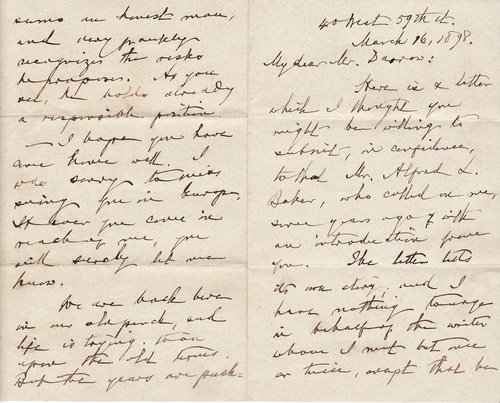 40 West 59th St.
March 16, 1898.
My dear Mr. Darrow:
Here is a letter
which I thought you
might be willing to
submit, in confidence,
to that Mr. Alfred L.
Baker, who called on me,
some years ago, with
an introduction from
you. The letter tells
its own story, and I
have nothing to urge
in behalf of the writer
whom I met but once
or twice, except that he
seems an honest man,
and very promptly
recognizes the risks
he proposes. As you
see, he holds already
a responsible position.
— I hope you have
come home well. I
was sorry to miss
seeing you in Europe.
If ever you come in
reach of me, you
will surely let me
know.
We are back here
in our and
life is trying
upon the old terms.
But the years are